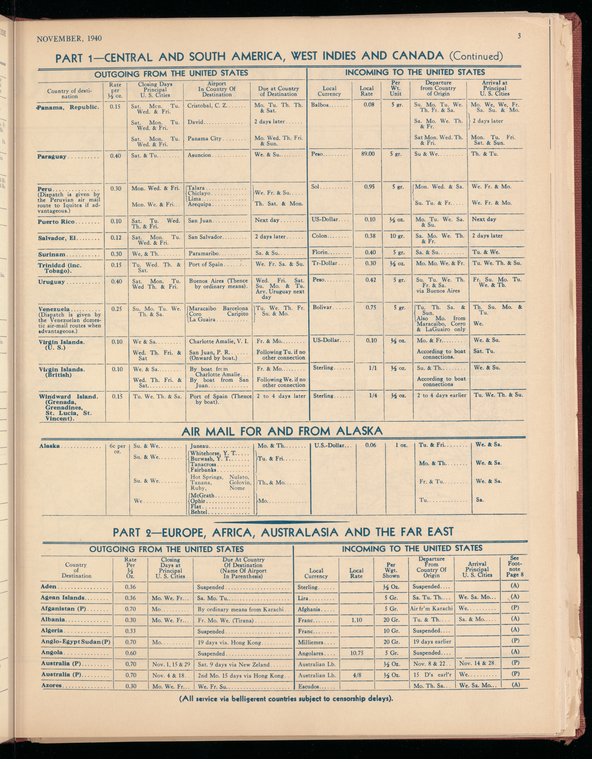 NOVEMBER, 1940
3
PART 1—CENTRAL AND SOUTH AMERICA, WEST INDIES AND CANADA (Continued)
OUTGOING FROM THE UNITED STATES INCOMING TO THE UNITED STATES
Country of desti-nation Rate per ½ oz. Closing Days Principal U. S. Cities Airport In Country Of Destination Due at Country of Destination Local Currency Local Rate Per Wt. Unit Departure from Country of Origin Arrival at Principal U. S. Cities
Panama, Republic. 0.15 Sat. Mon. Tu. Wed. & Fri. Cristobal, C. Z. Mo. Tu. Th. Th. & Sat. Balboa 0.08 5 gr. Su. Mo. Tu. We. Th. Fr. & Sa. Mo. We. We. Fr. Sa. Su. & Mo.
Sat. Mon. Tu. Wed. & Fri. David 2 days later Sa. Mo. We. Th. & Fr. 2 days later
Sat. Mon. Tu. Wed. & Fri. Panama City Mo. Wed. Th. Fri. & Sun. Sat Mon. Wed. Th. & Fri. Mon. Tu. Fri. Sat. & Sun.
Paraguay 0.40 Sat. & Tu. Asuncion We. & Su. Peso 89.00 5 gr. Su & We. Th. & Tu.
Peru 0.30 Mon. Wed. & Fri. Talara Chiclayo We. Fr. & Su. Sol 0.95 5 gr. Mon. Wed. & Sa. We. Fr. & Mo.
(Dispatch is given by the Peruvian air mail route to Iquitos if advantageous.) Mon. We. & Fri. Lima Arequipa Th. Sat. & Mon. Su. Tu. & Fr. We. Fr. & Mo.
Puerto Rico 0.10 Sat. Tu. Wed. Th. & Fri. San Juan Next day US-Dollar 0.10 ½ oz. Mo. Tu. We. Sa. & Su. Next day
Salvador, El 0.12 Sat. Mon. Tu. Wed. & Fri. San Salvador 2 days later Colon 0.38 10 gr. Sa. Mo. We. Th. & Fr. 2 days later
Surinam 0.30 We, & Th. Paramaribo Sa. & Su. Florin 0.40 5 gr. Sa. & Su. Tu. & We.
Trinidad (inc. Tobago). 0.15 Tu. Wed. Th. & Sat. Port of Spain We. Fr. Sa. & Su. Tr-Dollar 0.30 ½ oz. Mo. Mo. We. & Fr. Tu. We. Th. & Su.
Uruguay 0.40 Sat. Mon. Tu. Wed Th. & Fri. Buenos Aires (Thence by ordinary means). Wed. Fri. Sat. Su. Mo. & Tu. Arv. Uruguay next day Peso 0.42 5 gr. Su. Tu. We. Th. Fr. & Sa. via Buenos Aires Fr. Su. Mo. Tu. We. & Th.
Venezuela 0.25 Su. Mo. Tu. We. Th. & Sa. Maracaibo Barcelona Coro Caripito La Guaira Tu. We. Th. Fr. Su. & Mo. Bolivar 0.75 5 gr. Tu. Th. Sa. & Sun. Th. Su. Mo. & Tu.
(Dispatch is given by the Venezuelan domestic air-mail routes when advantageous.) Also Mo. from Maracaibo, Corro & LaGuairo only We.
Virgin Islands. (U. S.) 0.10 We & Sa. Charlotte Amalie, V. I. Fr. & Mo. US-Dollar 0.10 ½ oz. Mo. & Fr. We. & Su.
Wed. Th. Fri. & Sat San Juan, P. R. (Onward by boat.) Following Tu. if no other connection According to boat. connections. Sat. Tu.
Virgin Islands. (British) 0.10 We. & Sa. By boat from Charlotte Amalie Fr. & Mo. Sterling 1/1 ½ oz. Su. & Th. We. & Su.
Wed. Th. Fri. & Sat. By boat from San Juan Following We. if no other connection According to boat connections
Windward Island. (Grenada, Grenadines, St. Lucia, St. Vincent). 0.15 Tu. We. Th. & Su. Port of Spain (Thence by boat). 2 to 4 days later Sterling 1/4 ½ oz. 2 to 4 days earlier Tu. We. Th. & Su.
AIR MAIL FOR AND FROM ALASKA
Alaska 6c per oz. Su. & We. Juneau Mo. & Th. U.S.-Dollar 0.06 1 oz. Tu. & Fri. We. & Sa.
Su. & We. Whitehorse, Y. T. Burwash, Y. T. Tanacross Fairbanks Tu. & Fri. Mo. & Th. We. & Sa.
Su. & We. Hot Springs, Nulato, Tanana, Golovin, Ruby, Nome Th. & Mo. Fr. & Tu. We. & Sa.
We McGrath Ophir Flat Bethel Mo. Tu. Sa.
PART 2—EUROPE, AFRICA, AUSTRALASIA AND THE FAR EAST
OUTGOING FROM THE UNITED STATES INCOMING TO THE UNITED STATES
Country of Destination Rate Per ½ Oz. Closing Days at Principal U. S. Cities Due At Country Of Destination (Name Of Airport In Parenthesis) Local Currency Local Rate Per Wgt. Shown Departure From Country Of Origin Arrival Principal U. S. Cities See Foot-note Page 8
Aden 0.56 Suspended Sterling ½ Oz. Suspended (A)
Agean Islands 0.36 Mo. We. Fr. Sa. Mo. Tu. Lira 5 Gr. Sa. Tu. Th. We. Sa. Mo. (A)
Afganistan (P) 0.70 Mo. By ordinary means from Karachi Afghania 5 Gr. Air fr'm Karachi We. (P)
Albania 0.30 Mo. We. Fr. Fr. Mo. We. (Tirana) Franc 1.10 20 Gr. Tu. & Th. Sa. & Mo. (A)
Algeria 0.33 Suspended Franc 10 Gr. Suspended (A)
Anglo-Egypt Sudan (P) 0.70 Mo. 19 days via. Hong Kong Milliemes 20 Gr. 19 days earlier (P)
Angola 0.60 Suspended Angolares 10.75 5 Gr. Suspended (A)
Australia (P) 0.70 Nov. 1, 15 & 29 Sat. 9 days via New Zeland Australian Lb. ½ Oz. Nov. 8 & 22 Nov. 14 & 28 (P)
Australia (P) 0.70 Nov. 4 & 18 2nd Mo. 15 days via Hong Kong Australian Lb. 4/8 ½ Oz. 15 D's earl'r We. (P)
Azores 0.30 Mo. We. Fr. We. Fr. Su. Escudos Mo. Th. Sa. We. Sa. Mo. (A)
(All service via belligerent countries subject to censorship delays).